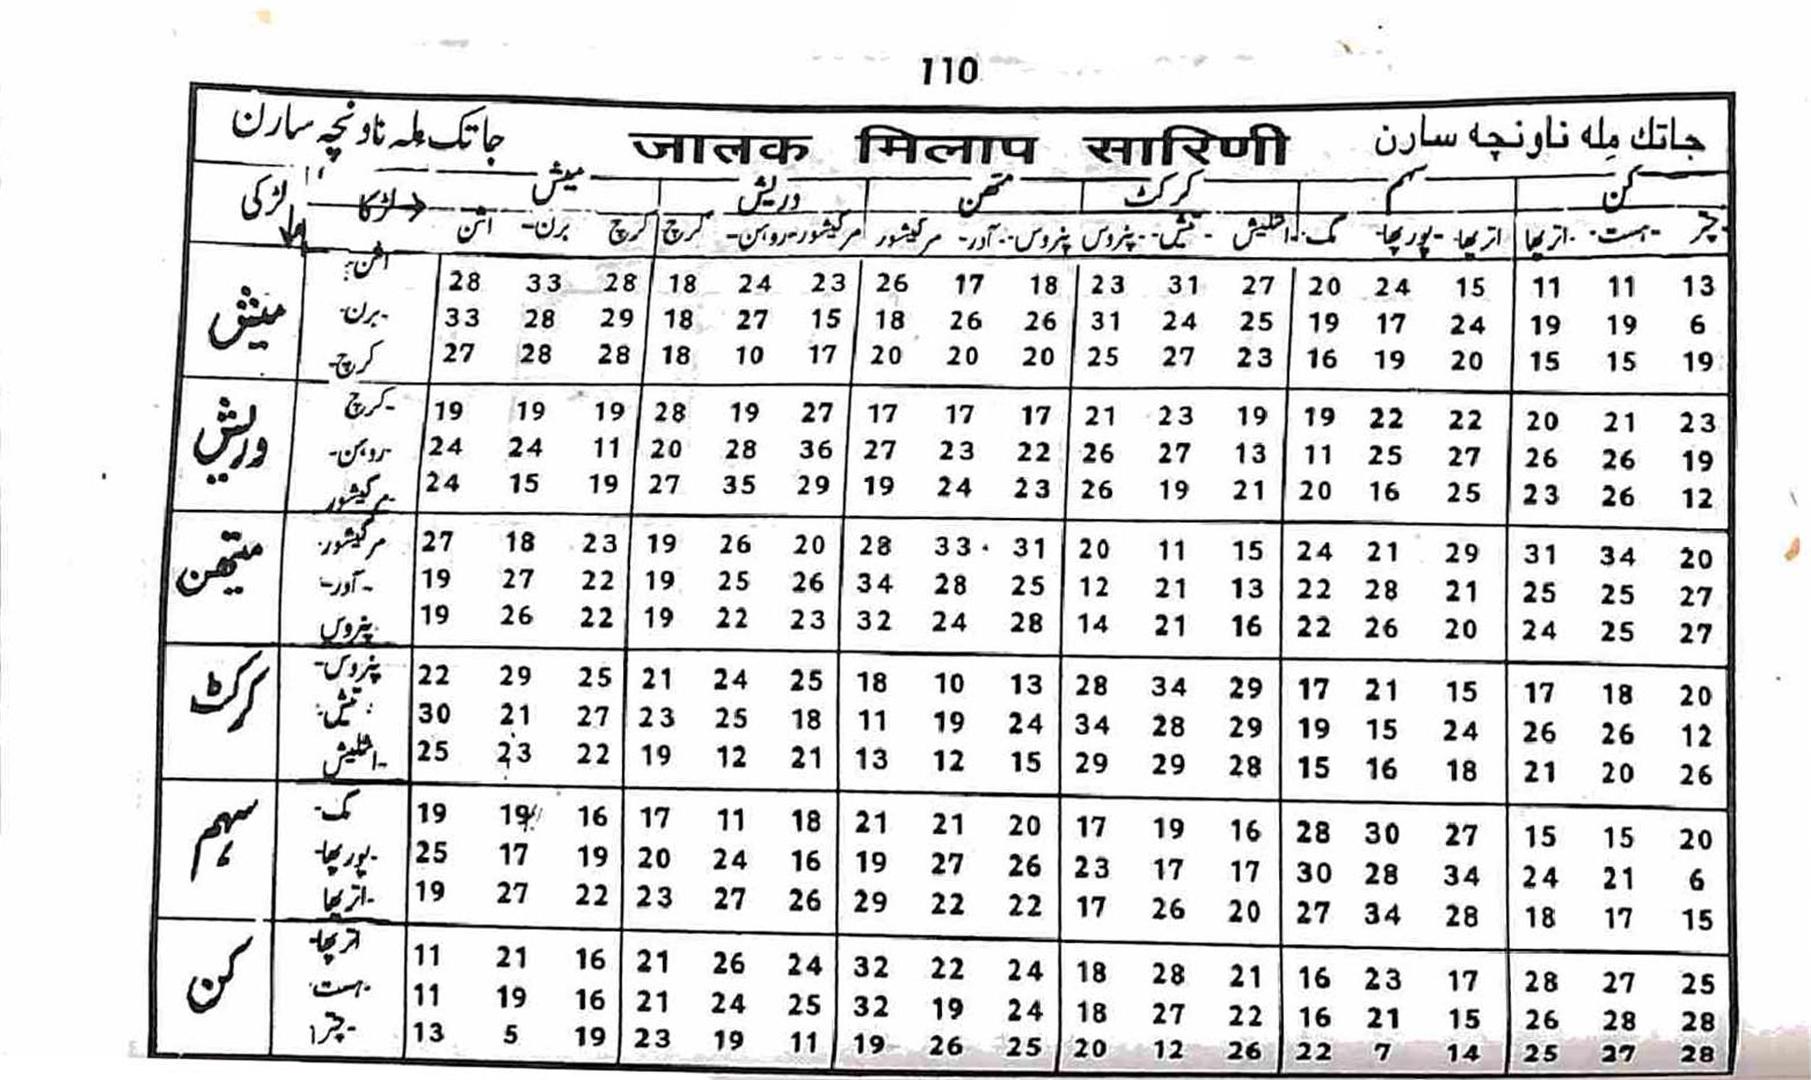 110
جاتک مِلہ ناونچہ سارن जातक मिलाप सारिणी جاتک مِلہ ناونچہ سارن
لڑکی لڑکا → میش وریش متھن کرکٹ سہم کن
اشن برن- کرچ کرچ روہن- مرگیشور مرگیشور آور- پنروس پنروس تیش- اشلیش مگ- پورپھا- اترپھا اترپھا- ہست- چتر
میش اشن- 28 33 28 18 24 23 26 17 18 23 31 27 20 24 15 11 11 13
برن- 33 28 29 18 27 15 18 26 26 31 24 25 19 17 24 19 19 6
کرچ- 27 28 28 18 10 17 20 20 20 25 27 23 16 19 20 15 15 19
وریش کرچ- 19 19 19 28 19 27 17 17 17 21 23 19 19 22 22 20 21 23
روہن- 24 24 11 20 28 36 27 23 22 26 27 13 11 25 27 26 26 19
مرگیشور 24 15 19 27 35 29 19 24 23 26 19 21 20 16 25 23 26 12
میتھن مرگیشور 27 18 23 19 26 20 28 33 31 20 11 15 24 21 29 31 34 20
آور- 19 27 22 19 25 26 34 28 25 12 21 13 22 28 21 25 25 27
پنروس 19 26 22 19 22 23 32 24 28 14 21 16 22 26 20 24 25 27
کرکٹ پنروس- 22 29 25 21 24 25 18 10 13 28 34 29 17 21 15 17 18 20
تیش 30 21 27 23 25 18 11 19 24 34 28 29 19 15 24 26 26 12
اشلیش- 25 23 22 19 12 21 13 12 15 29 29 28 15 16 18 21 20 26
سہم مگ- 19 19 16 17 11 18 21 21 20 17 19 16 28 30 27 15 15 20
پورپھا- 25 17 19 20 24 16 19 27 26 23 17 17 30 28 34 24 21 6
اترپھا- 19 27 22 23 27 26 29 22 22 17 26 20 27 34 28 18 17 15
کن اترپھا- 11 21 16 21 26 24 32 22 24 18 28 21 16 23 17 28 27 25
ہست 11 19 16 21 24 25 32 19 24 18 27 22 16 21 15 26 28 28
چترا- 13 5 19 23 19 11 19 26 25 20 12 26 22 7 14 25 27 28